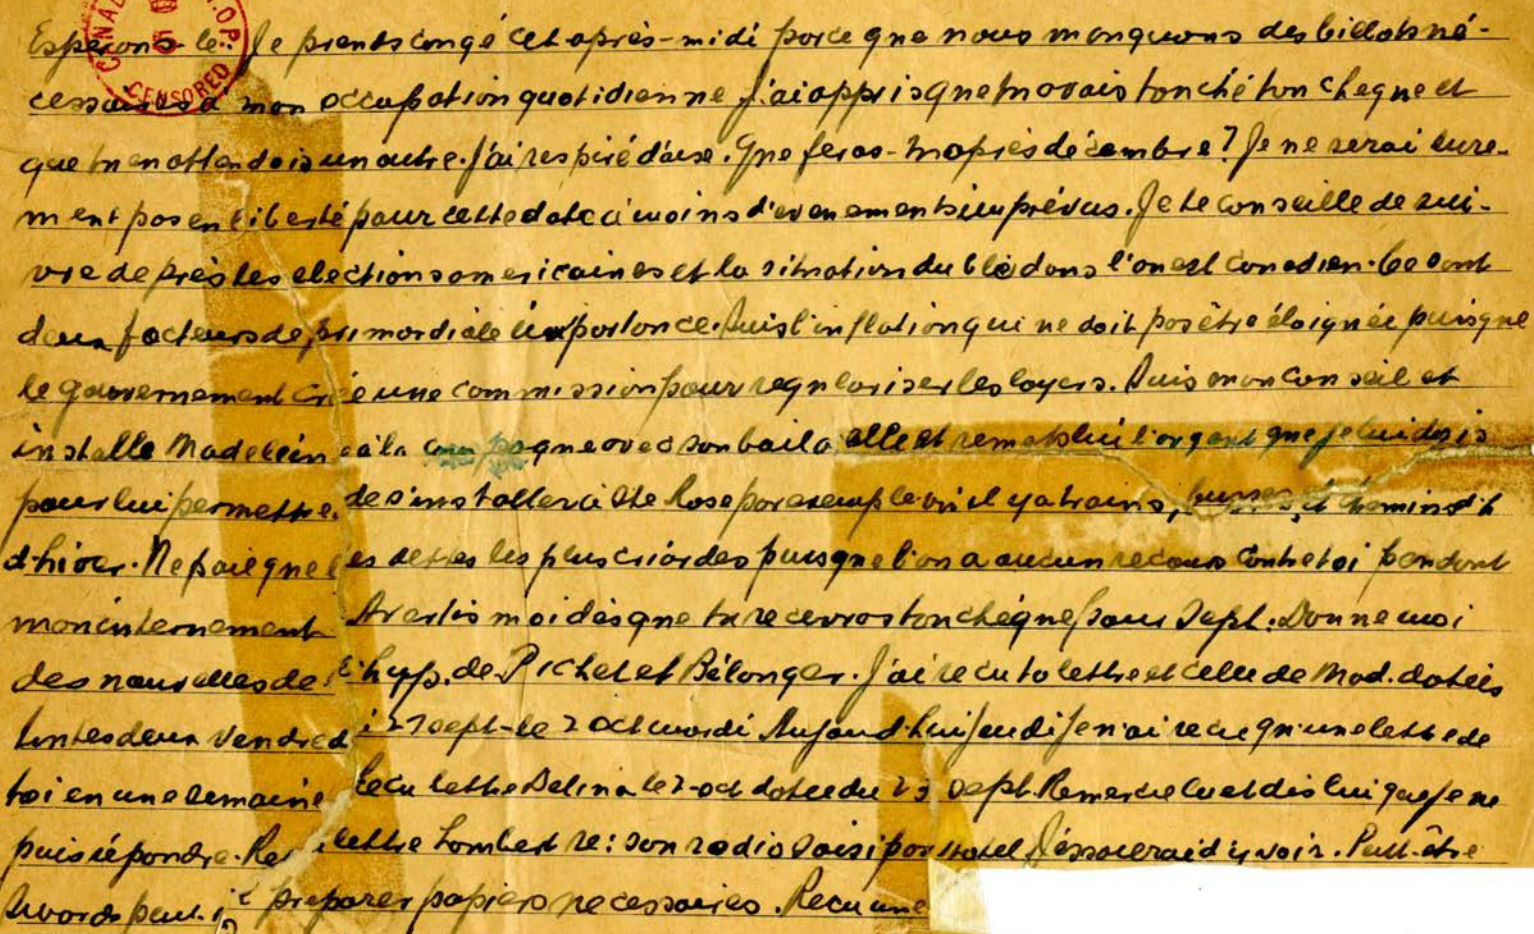 Esperons-le. Je prends congé cet après-midi parce que nous manquons des billots né-
cessaires à mon occupation quotidienne J'ai appris que tu avais touché ton cheque et
que tu en attendais un autre. J'ai respiré d'aise. Que feras-tu après décembre? Je ne serai sure-
ment pas en liberté pour cette date à moins d'evenements imprévus. Je te conseille de sui-
vre de près les elections americaines et la situation du blé dans l'ouest canadien. Ce sont
deux facteurs de primordiale importance. Puis l'inflation qui ne doit pas être éloignée puisque
le gouvernement crée une commission pour regulariser les loyers. Suis mon conseil et
installe Madeleine à la campagne avec son bail à elle et remets lui l'argent que je lui dois
pour lui permettre de s'installer à Ste Rose par exemple où il y a trains, busses, et chemins d'h
d'hiver. Ne paie que les dettes les plus criardes puisque l'on a aucun recours contre toi pendant
mon internement Avertis moi dès que tu recevras ton chèque pour Sept. Donne moi
des nouvelles de l'hyp. de Pichet et Bélanger. J'ai recu ta lettre et celle de Mad. datées
toutes deux vendredi 27 sept - le 2 oct mardi Aujourd'hui jeudi je n'ai recu qu'une lettre de
toi en une semaine Recu lettre Delina le 2 oct datee du 23 sept. Remercie la et dis lui que je ne
puis répondre. Recu lettre Lambert re: son radio saisi par Hotel y voir. Peut-être
peut-il preparer papiers necessaires. Recu une